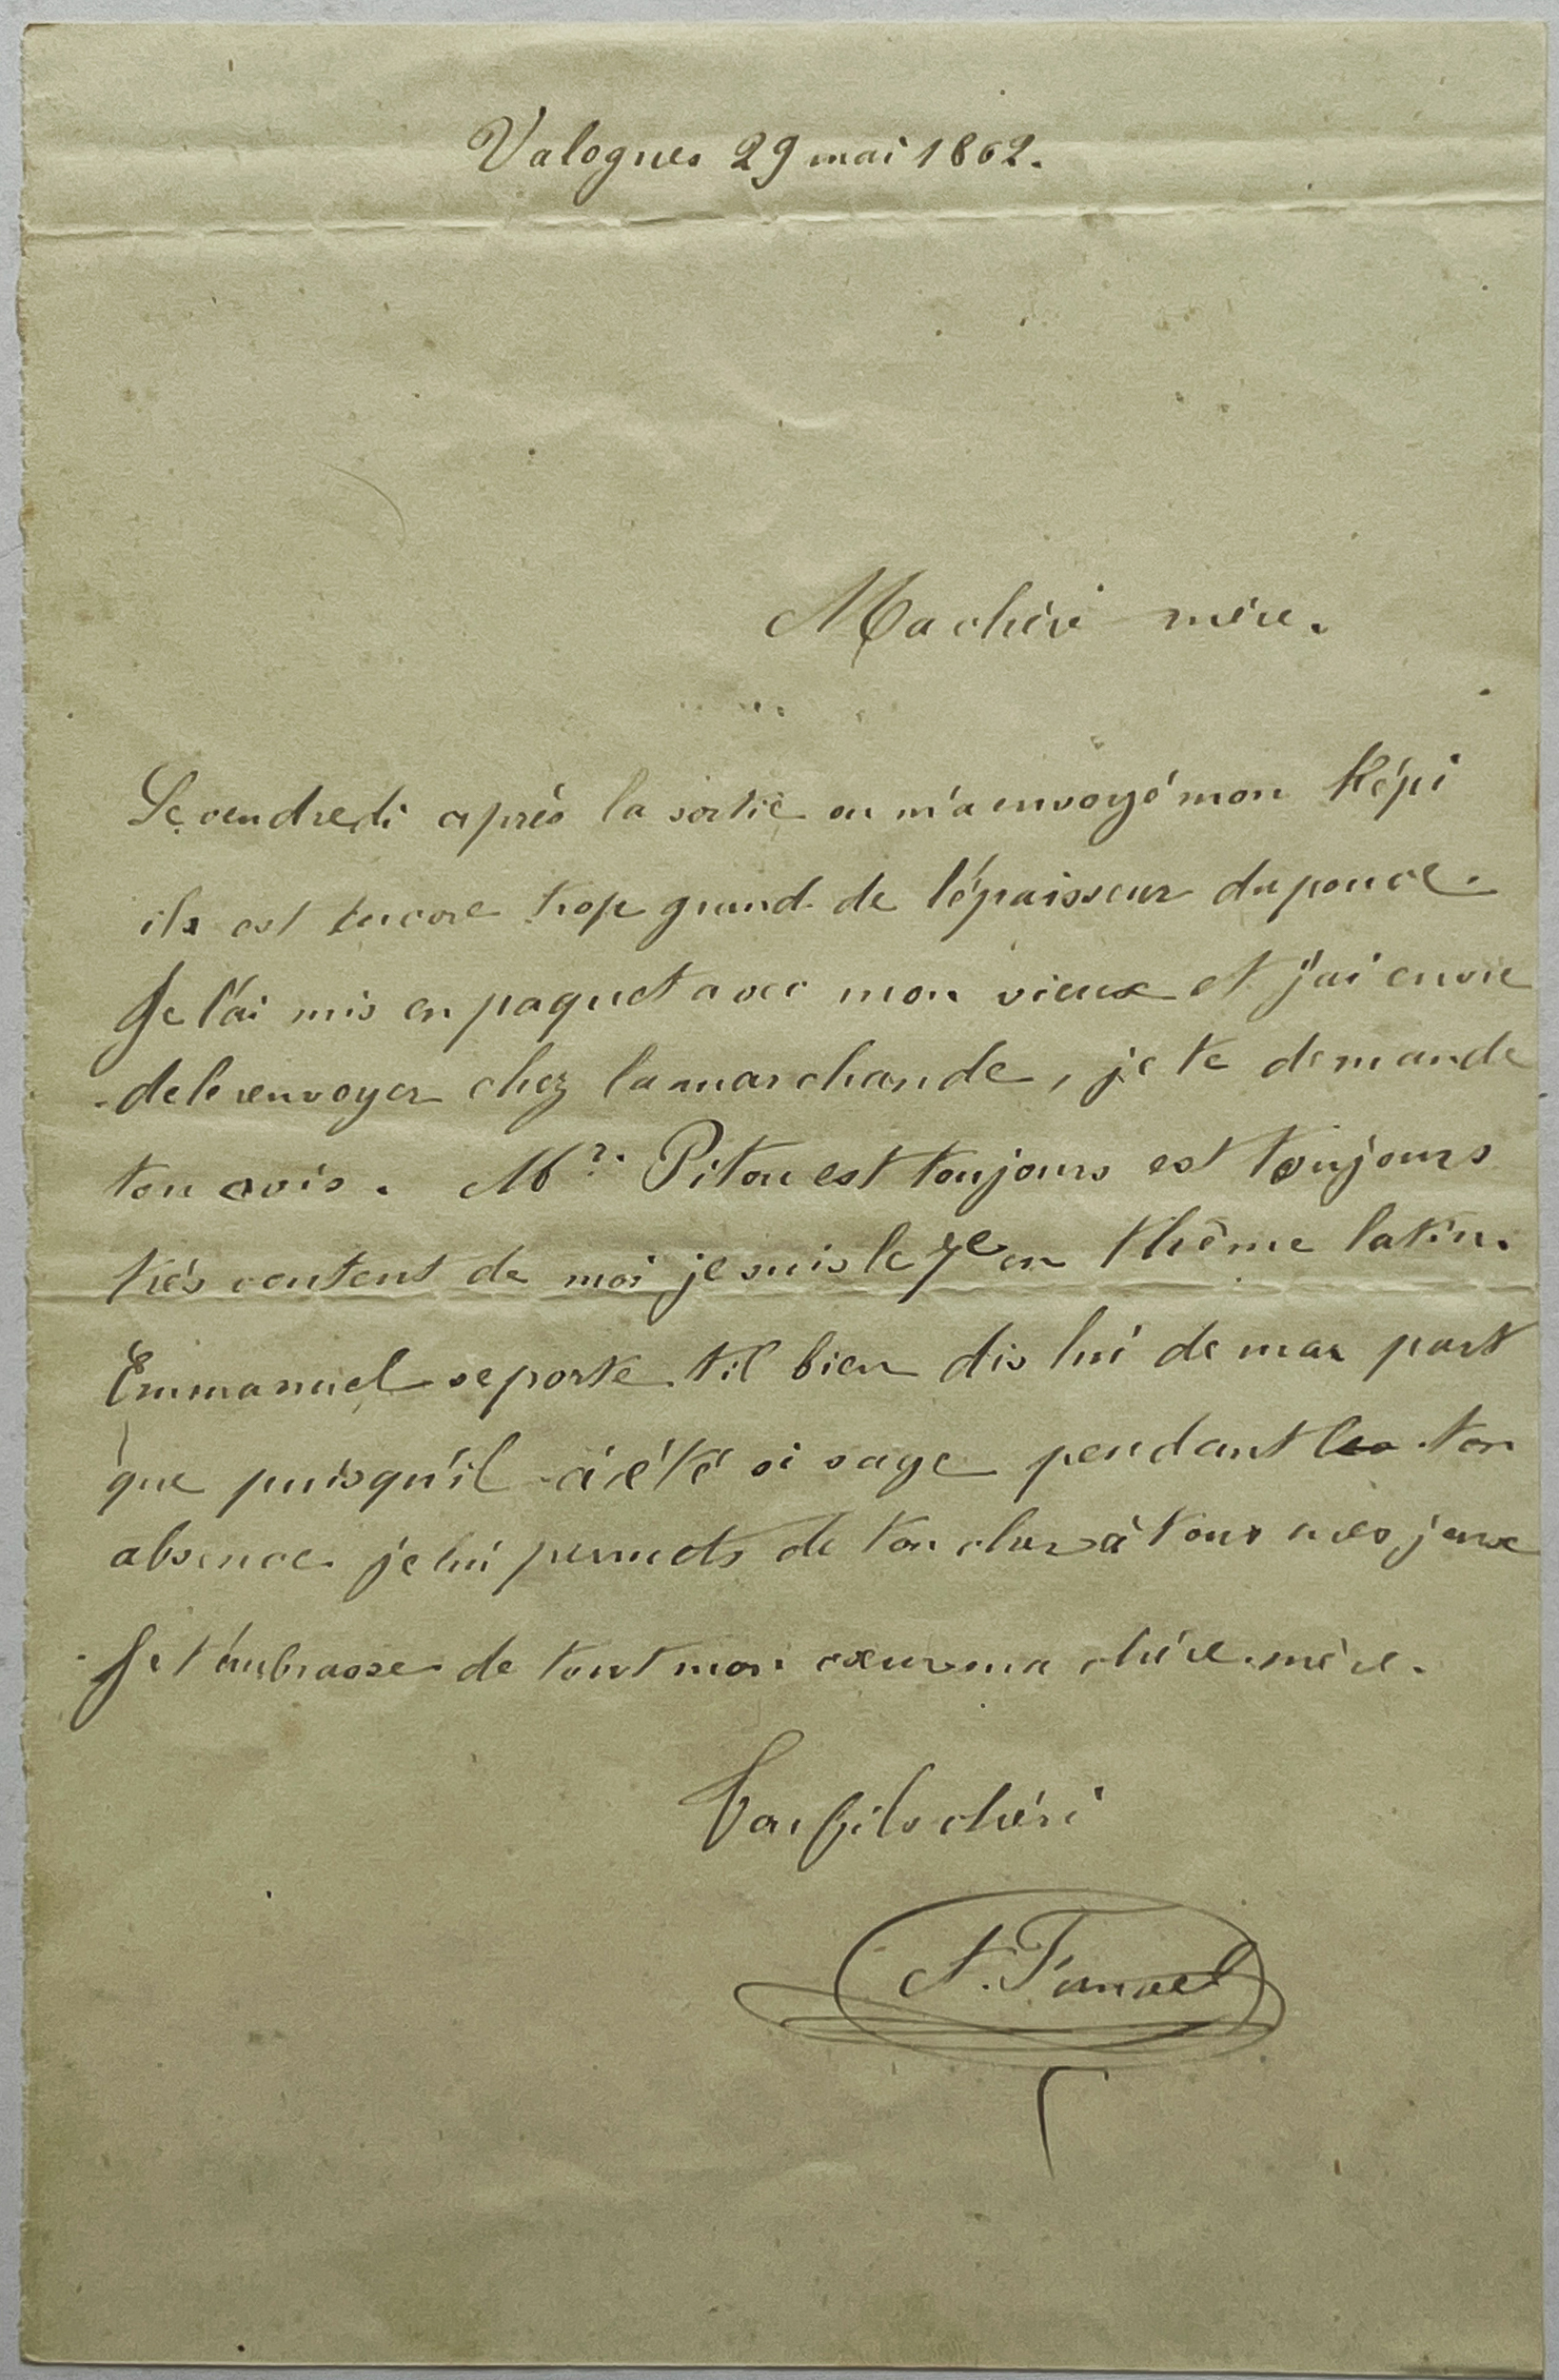 Valognes 29 mai 1862.
Ma chère mère.
Le vendredi après la sortie on m'a envoyé mon Képi
ils est encore trop grand de l'épaisseur du pouce.
Je l'ai mis en paquet avec mon vieux et j'ai envie
de le renvoyer chez la marchande, je te demande
ton avis. Mr. Piton est toujours est toujours
très content de moi je suis le 7e en thême latin.
Emmanuel se porte til bien dis lui de ma part
que puisqu'il à été si sage pendant ton
absence je lui permets de toucher à tous mes jeux
Je t'embrasse de tout mon cœur ma chère mère.
Ton fils chéri